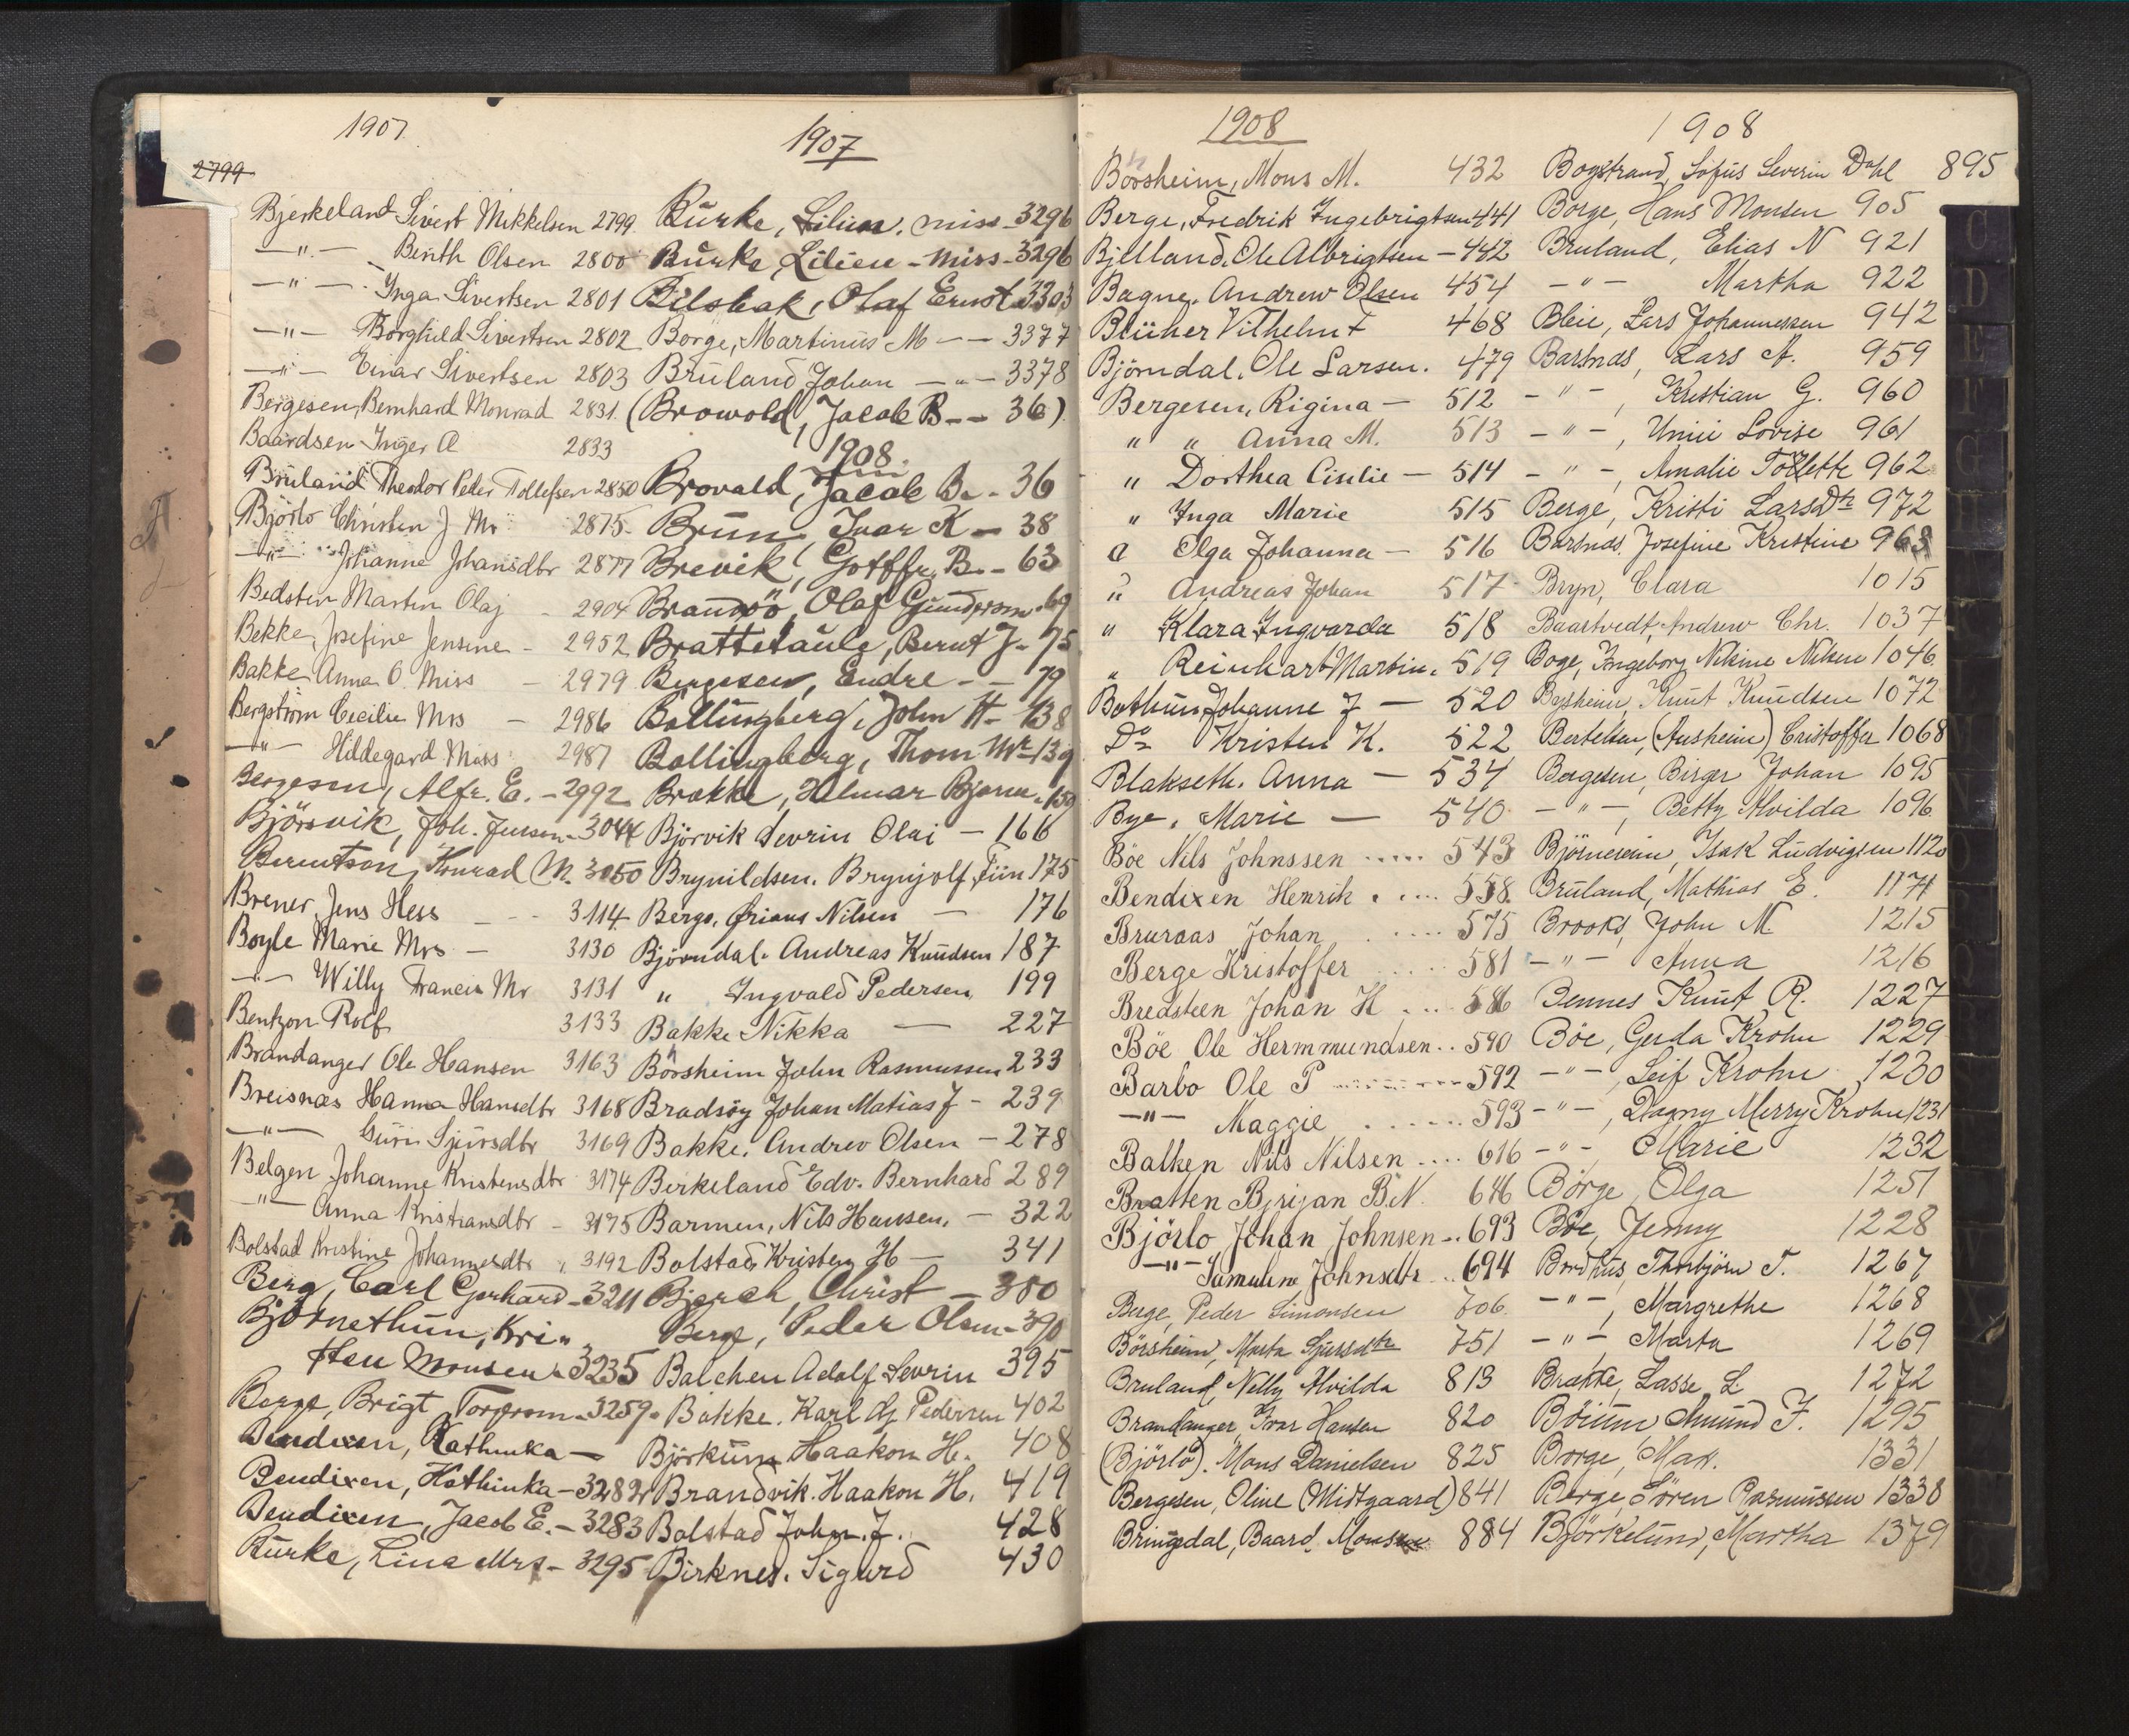 1907
2799
Bjerkeland Sivert Mikkelsen 2799
—"— Berith Olsen 2800
—"— Inga Sivertsen 2801
—"— Borghild Sivertsen 2802
—"— Einar Sivertsen 2803
Bergesen, Bernhard Monrad 2831.
Baardsen Inger A 2833
Bruland Theodor Peder Tollefsen 2850
Bjørlo Christen J Mr 2875
—"— Johanne Johansdtr 2877
Martin Olaj - 2904
Bekke, Josefine Jensine - 2952
Bakke Anna O. Miss - 2979
Bergström Cecilie Mrs - 2986
—"— Hildegard Miss 2987
Bergesen, Alfr. E. - 2992
Björsvik, Joh. Jenson - 3044
Berentson, Konrad M. 3050
Brener, Jens Hess - - - 3114
Boyle Marie Mrs - 3130
—"— Willy Francis Mr 3131
Bentzon Rolf 3133
Brandanger Ole Hansen 3163
Breisnæs Hanna Hansdtr 3168
—"— Guri Sjursdtr 3169
Belgen Johanne Kristensdtr 3174
—"— Anna Kristiansdtr - 3175
Bolstad Kristine Johannesdtr 3192
Berg, Carl Gerhard - 3211
Björnethun, Kri=
sten Monsen - 3235
Berge, Brigt Torgersen - 3259
Bendixen, Kathinka —
Bendixen, Kathinka - 3282
Bendixen, Jacob E. - 3283
Burke, Lina Mrs - 3295
1907
Burke, Lilian, miss - 3296
Burke, Lilien - miss - 3296
Bilsbak, Olaf Ernst 3303
Borge, Martinus M — — 3377
Bruland Johan — " — 3378
(Browold, Jacob B - - 36)
1908.
Brovald, Jacob B. - 36
Brun, Ivar K — 38
Brevik, Gotffr. B. - 63
Olaf Gunderson - 69
Brattetaule, Bernt J - 75
Bergesen, Endre - - 79
Bollingberg, John H - 138
Bollingberg, Thom Mr - 139
Brakke, Hilmar Bjarn. 159
Björvik Sevrin Olai — 166
Brynildsen. Brynjolf Fiin 175
Berge, Nilsen — 176
Björndal. Andreas Knudsen 187
" Ingvald Pedersen, 199
Bakke Nikka — 227
Börsheim John Rasmussen 233
Bradsöy Johan Matias J - 239
Bakke. Andrew Olsen - 278
Birkeland Edv. Bernhard 289
Barmen, Nils Hansen, — 322
Bolstad Kristen H — 341
Bjerch, Christ — 380
Berge, Peder Olsen - 390
Balchen Adolf Sevrin 395
Bakke. Karl Aj Pedersen 402
Björkum Haakon H. 408
Brandvik. Haakon H. 419
Bolstad John. J. 428
Birknes. Sigurd 430
1908
Börsheim, Mons M. 432
Berge, Fredrik Ingebrigtsen 441
Bjelland. Ole Albrigtsen - 442
Bagne. Andrew Olsen 454
Blüher Vilhelm F 468
Björndal. Ole Larsen. 479
Bergesen, Rigina — 512
" " Anna M. 513
" Dorthea Cicilie — 514
" Inga Marie 515
" Olga Johanna — 516
" Andreas Johan 517
" Klara Ingvarda 518
" Reinhart Martin. 519
Bothun Johanne J — 520
Do Kristen K. 522
Blakseth. Anna — 534
Bye. Marie — 540
Böe Nils Johnssen ..... 543
Bendixen Henrik ..... 558
Bruraas Johan ..... 575
Berge Kristoffer ..... 581
Bredsteen Johan H .... 586
Böe Ole Hermmundsen.. 590
Barbo Ole P ........ 592
—"— Maggie ....... 593
Balken Nils Nilsen .... 616
Bratten Bjrijan B.N. 646
Björlo Johan Johnsen .. 693
—"— Samuline Johnsdtr .. 694
Berge, Peder Simonsen 706
Börsheim, Marta Sjursdtr 751
Bruland, Nelly Alvilda 813
Brandanger, Ivar Hansen 820
(Björlo). Mons Danielsen 825
Bergesen, Oline (Midtgaard) 841
Bringedal, Baard. Monsen 884
1908
Bogstrand, Sofus Severin Dahl 895
Borge, Hans Monsen 905
Bruland, Elias N 921
—"— Martha 922
Bleie, Lars Johannessen 942
Barsnæs, Lars A. 959
—"—, Kristian G. 960
—"—, Lovise 961
—"—, Amalie 962
Berge, Kristi Larsdtr 972
Barsnæs, Josefine Kristine 963
Bryn, Clara 1015
Baartvedt, Andrew Chr. 1037
Boge, Ingeborg Nikine Nilsen 1046
Knut Knudsen 1072
Bertelsen, (Ausheim) Cristoffer 1068
Bergesen, Birger Johan 1095
—"—, Betty Alvilda 1096
Isak Ludvigsen 1120
Bruland, Mathias E. 1174
Brooks, John M. 1215
—"— Anna 1216
Bennes Knut R. 1227
Böe, Gerda Krohn 1229
—"—, Leif Krohn 1230
—"—, Dagny Merry Krohn 1231
—"— Marie 1232
Börge, Olga 1251
Böe, Jenny 1228
Bordhus, Thorbjörn T. 1267
—"—, Margrethe 1268
—"—, Marta 1269
Brakke, Lasse L 1272
Böium Amund J. 1295
Borge, Max. 1331
Berge, Sören Rasmussen 1338
Björkelund, Martha 1379
C
D
E
F
G